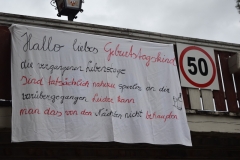 Hallo liebes Geburtstagskind
die vergangenen Lebensjahre
sind tatsächlich nahezu spurlos an dir
vorübergegangen leider kann
man das von den Nächten nicht behaupten
50